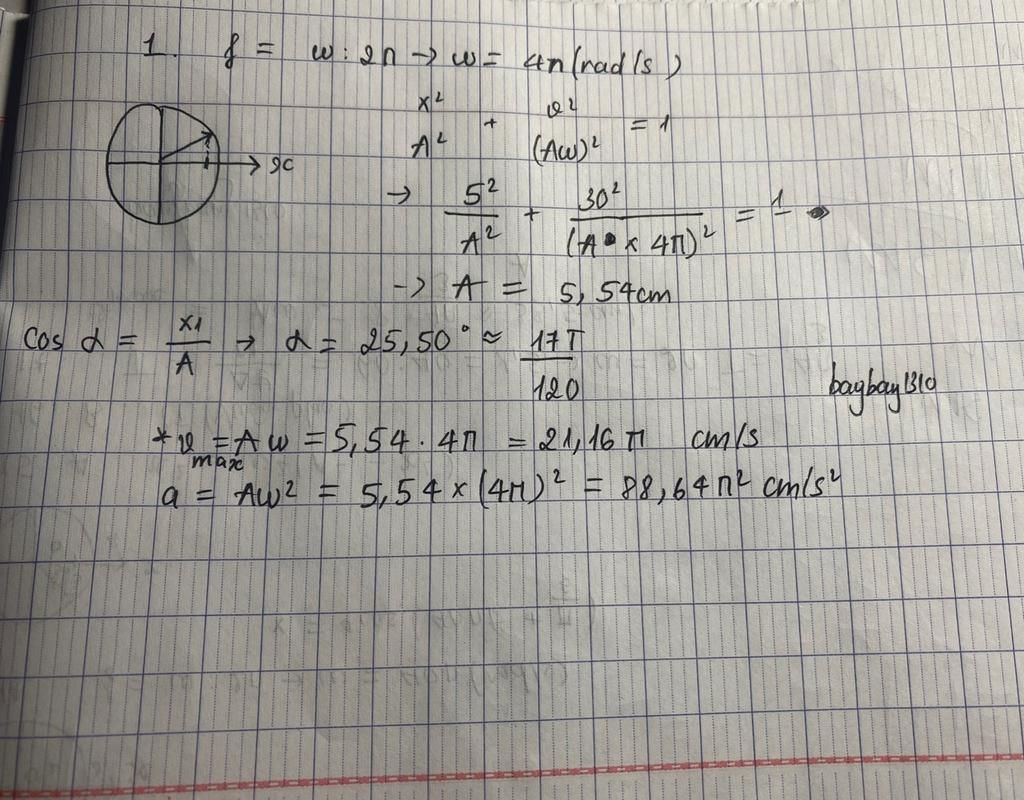 1. f = ω : 2π → ω = 4π (rad/s)
x²/A² + v²/(Aω)² = 1
x
→ 5²/A² + 30²/(A × 4π)² = 1
→ A = 5,54cm
cos α = x1/A → α = 25,50° ≈ 17π/120
baybay1310
* v max = Aω = 5,54 . 4π = 21,16 π cm/s
a = Aω² = 5,54 × (4π)² = 88,64 π² cm/s²